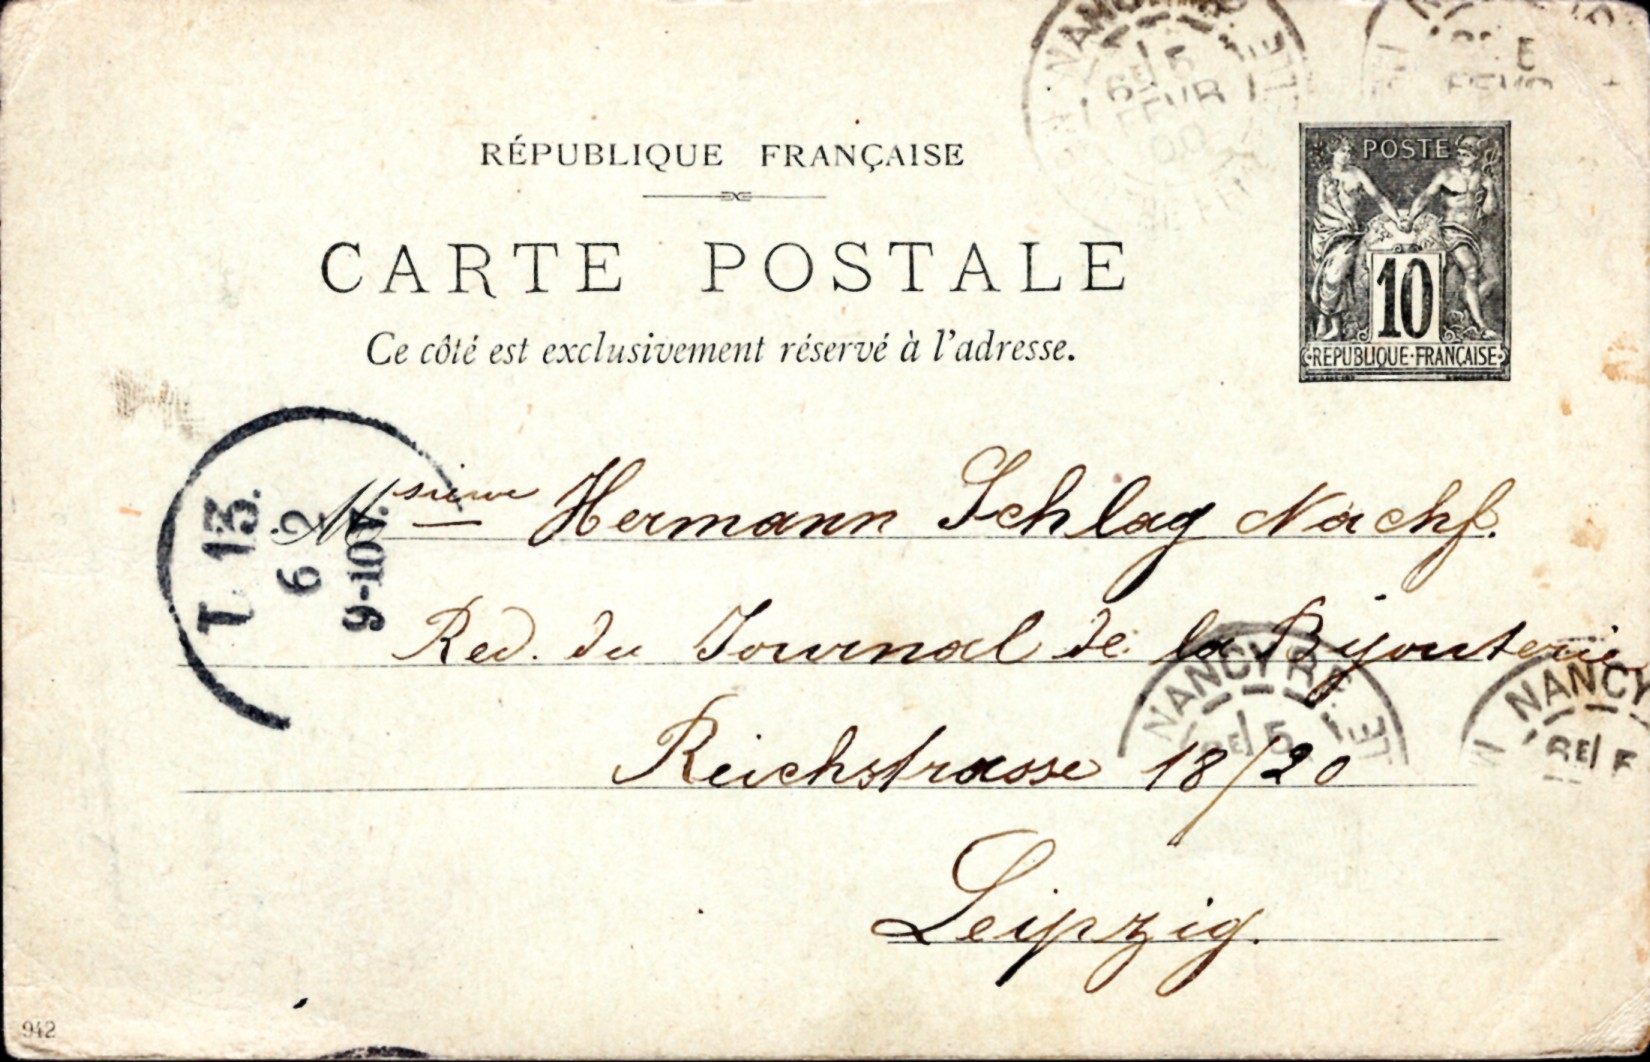 NANCY
6E / 5
FEVR
00
E
RÉPUBLIQUE FRANÇAISE
POSTE
CARTE POSTALE
10
Ce côté est exclusivement réservé à l'adresse.
REPUBLIQUE·FRANÇAISE
T. 13.
6 2
9-10 V.
Msieurs Hermann Schlag Nachf.
Red. du Journal de la Bijouterie
NANCY
NANCY
Reichstrasse 18/20
Leipzig.
942